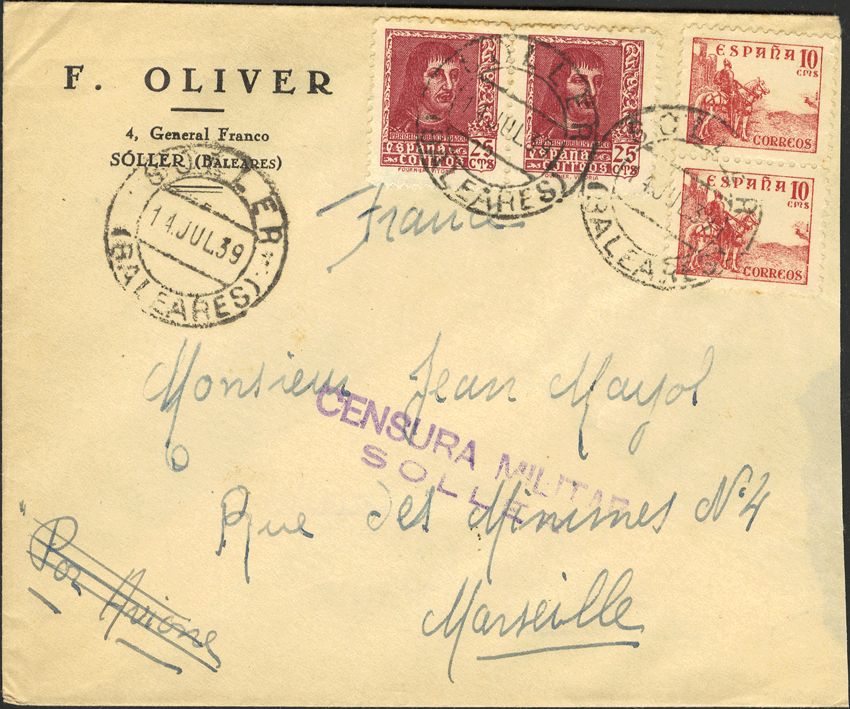 F. OLIVER
4, General Franco
SÓLLER (BALEARES)
SOLLER
14 JUL 39
(BALEARES)
ESPAÑA
25 CTS
CORREOS
ESPAÑA
25 CTS
CORREOS
SOLLER
JUL 39
BALEARES)
ESPAÑA 10
cms
CORREOS
ESPAÑA 10
cms
CORREOS
SOLLER
14 JUL 39
(BALEARES)
France
Monsieur Jean Mayol
CENSURA MILITAR
SOLLE
6 Rue des Minimes Nº 4
Marseille
"Por Avion"